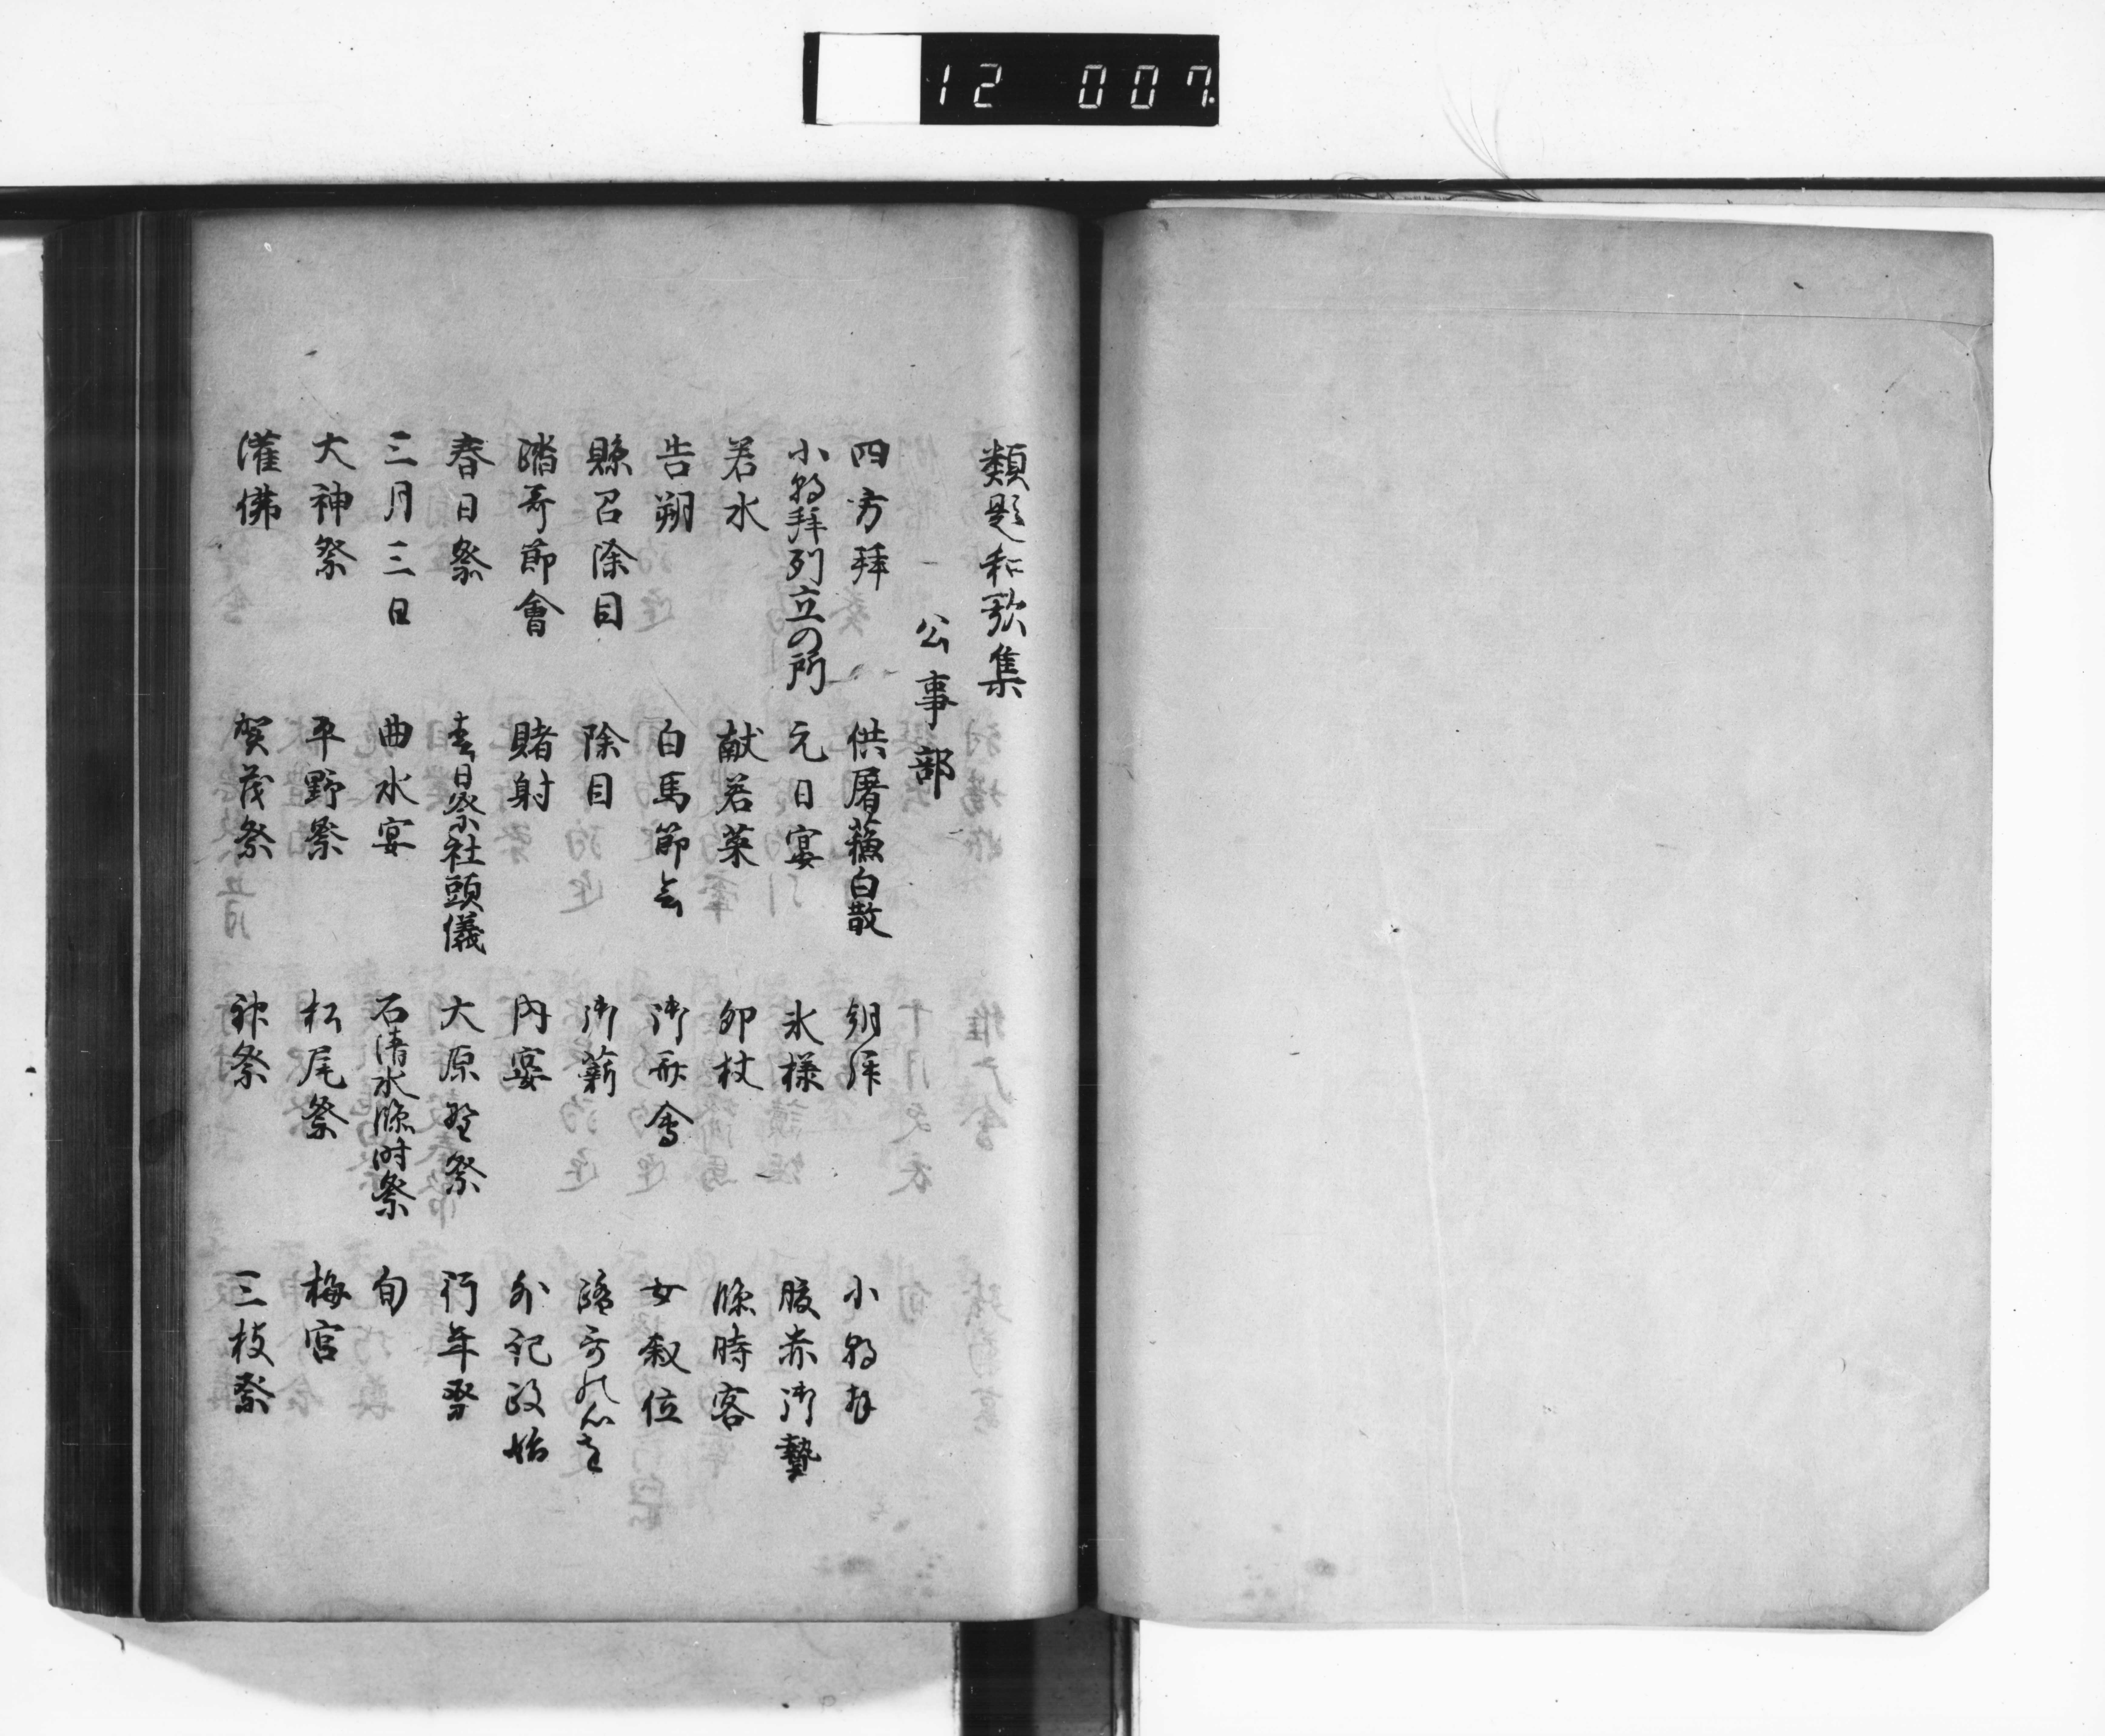 12 007
類題和歌集
公事部
四方拜 供屠蘇白散 朝拝 小朝拝
小朝拜列立の所 元日宴 氷様 腹赤御贄
若水 献若菜 卯杖 臨時客
告朔 白馬節会 御斎會 女叙位
縣召除目 除目 御薪 踏哥
踏哥節會 賭射 内宴 外記政始
春日祭 春日祭社頭儀 大原野祭 祈年祭
三月三日 曲水宴 石清水臨時祭 旬
大神祭 平野祭 松尾祭 梅宮
灌佛 賀茂祭 神祭 三枝祭